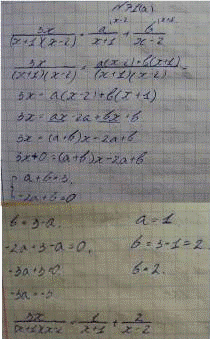 №71(a)
3x/((x+1)(x-2)) = a/(x+1) + b/(x-2)
3x/((x+1)(x-2)) = (a(x-2)+b(x+1))/((x+1)(x-2))
3x = a(x-2)+b(x+1)
3x = ax-2a+bx+b
3x = (a+b)x-2a+b
3x+0=(a+b)x-2a+b
{ a+b=3,
-2a+b=0
b=3-a. a=1
-2a+3-a=0, b=3-1=2
-3a+3=0. b=2.
-3a=-3
3x/((x+1)(x-2)) = 1/(x+1) + 2/(x-2)